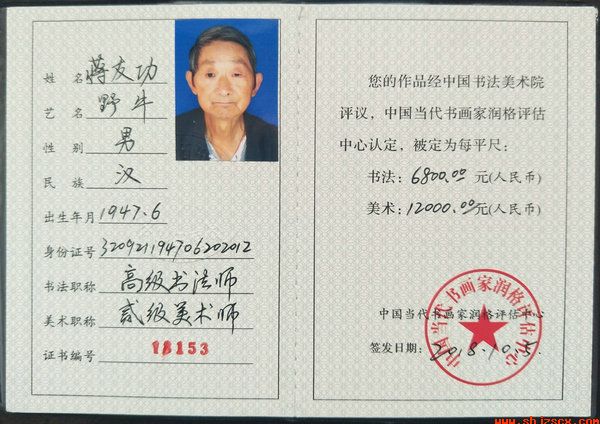 姓 名 蒋友功
艺 名 野牛
性 别 男
民 族 汉
出生年月 1947.6
身份证号 320921194706202012
书法职称 高级书法师
美术职称 贰级美术师
证书编号 18153
您的作品经中国书法美术院
评议，中国当代书画家润格评估
中心认定，被定为每平尺：
书法：6800.00 元(人民币)
美术：12000.00元(人民币)
中国当代书画家润格评估中心
签发日期：2018.10.15.
中国当代书画家润格评估中心
www.shjzscx.com